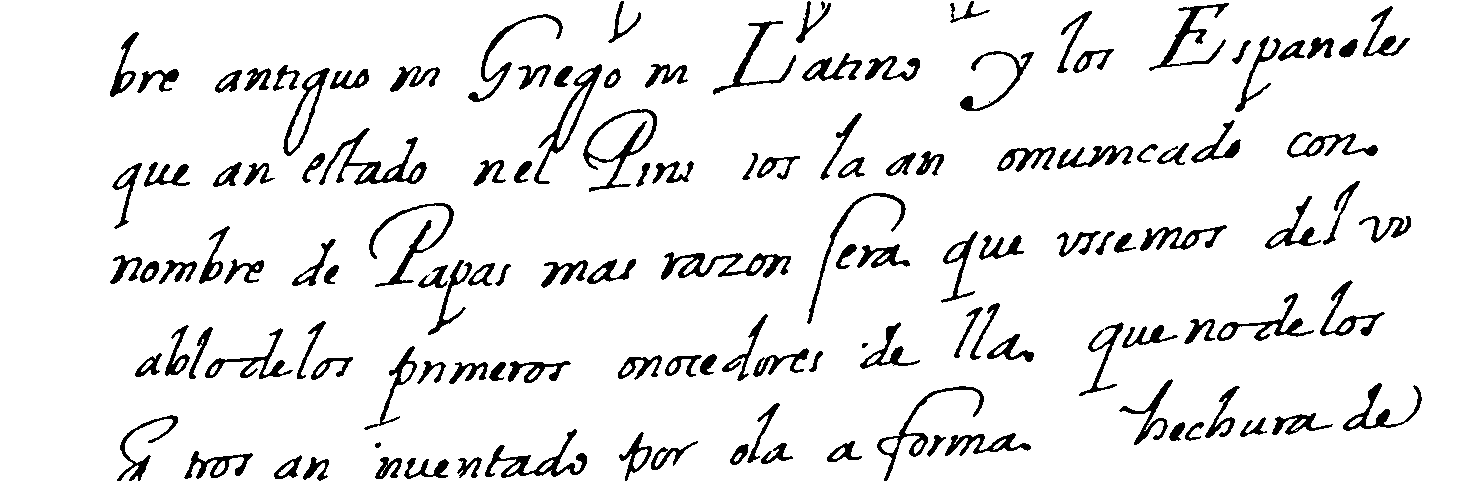 bre antiguo ni Griego ni Latino y los Españoles
que an estado nel Piru ios la an omunicado con.
nombre de Papas mas razon sera. que vssemos del vo
ablo delos primeros onocedores de lla. que no delos
q tros an inuentado por ola a forma. hechura de